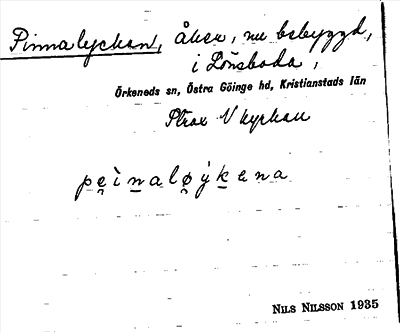 Pinnalyckan, åker, nu bebyggd,
i Lönsboda,
Örkeneds sn, Östra Göinge hd, Kristianstads län
Strax N kyrkan
pe̯ìnalø̯ýkena
NILS NILSSON 1935